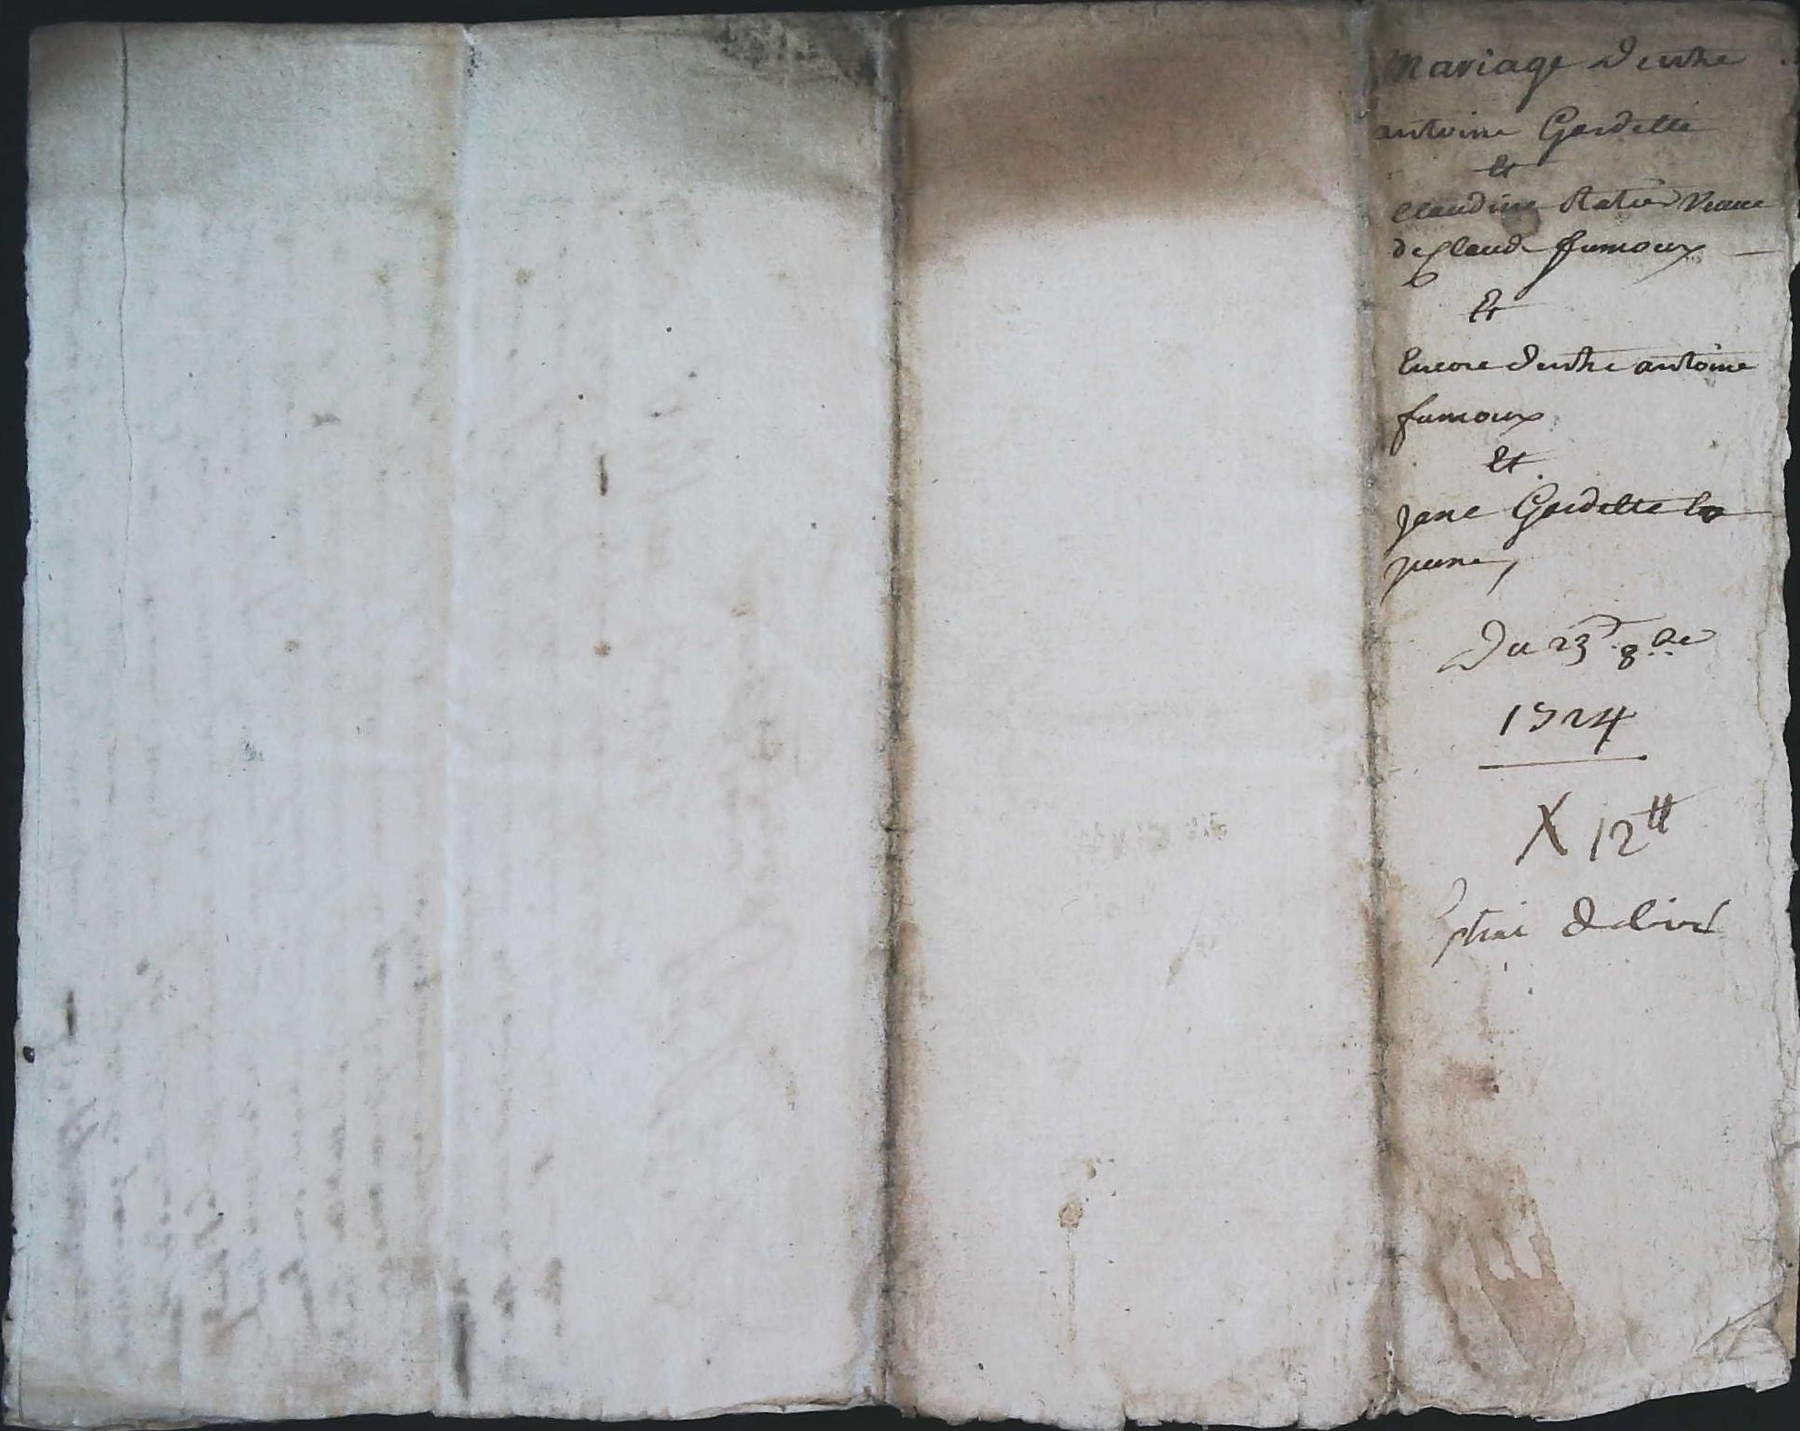 Mariage Dentre
antoine Gardette
Et
Claudine Ratier Veuve
de Claude fumoux
Et
Encore dentre antoine
fumoux
Et
Jane Gardette la
jeune,
Du 23e 8bre
1724
X 12tt
Extrai delivré